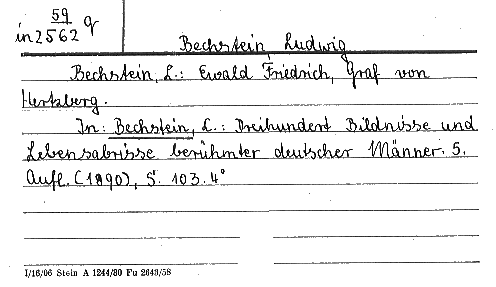 59
in 2562 q
Bechstein, Ludwig
Bechstein, L.: Ewald Friedrich, Graf von
Hertzberg.
In: Bechstein, L.: Dreihundert Bildnisse und
Lebensabrisse berühmter deutscher Männer. 5.
Aufl. (1890), S. 103. 4°
I/16/06 Stein A 1244/80 Fu 2643/58